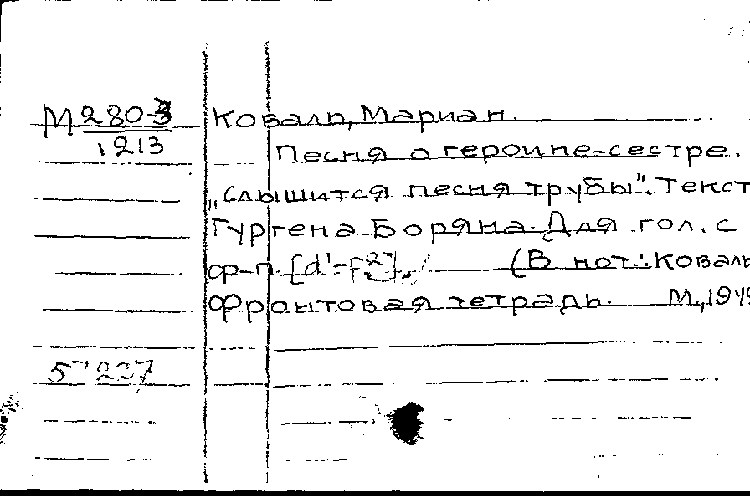 М280-3 Коваль, Мариан.
1213 Песня о героине-сестре.
„Слышится песня трубы". Текст
Гургена Боряна. Для гол. с
ф-п. [d'-f²]. (В нот.: Коваль
Фронтовая тетрадь. М., 194